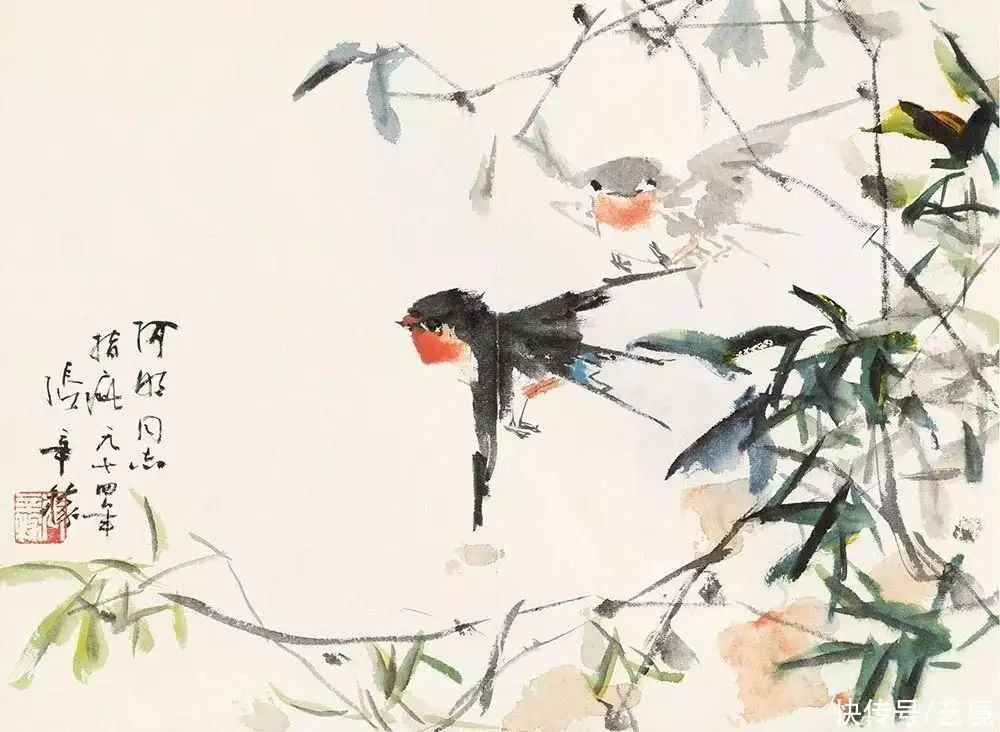 阿明同志
指疵 一九七四年
張辛稼
快传号/艺境